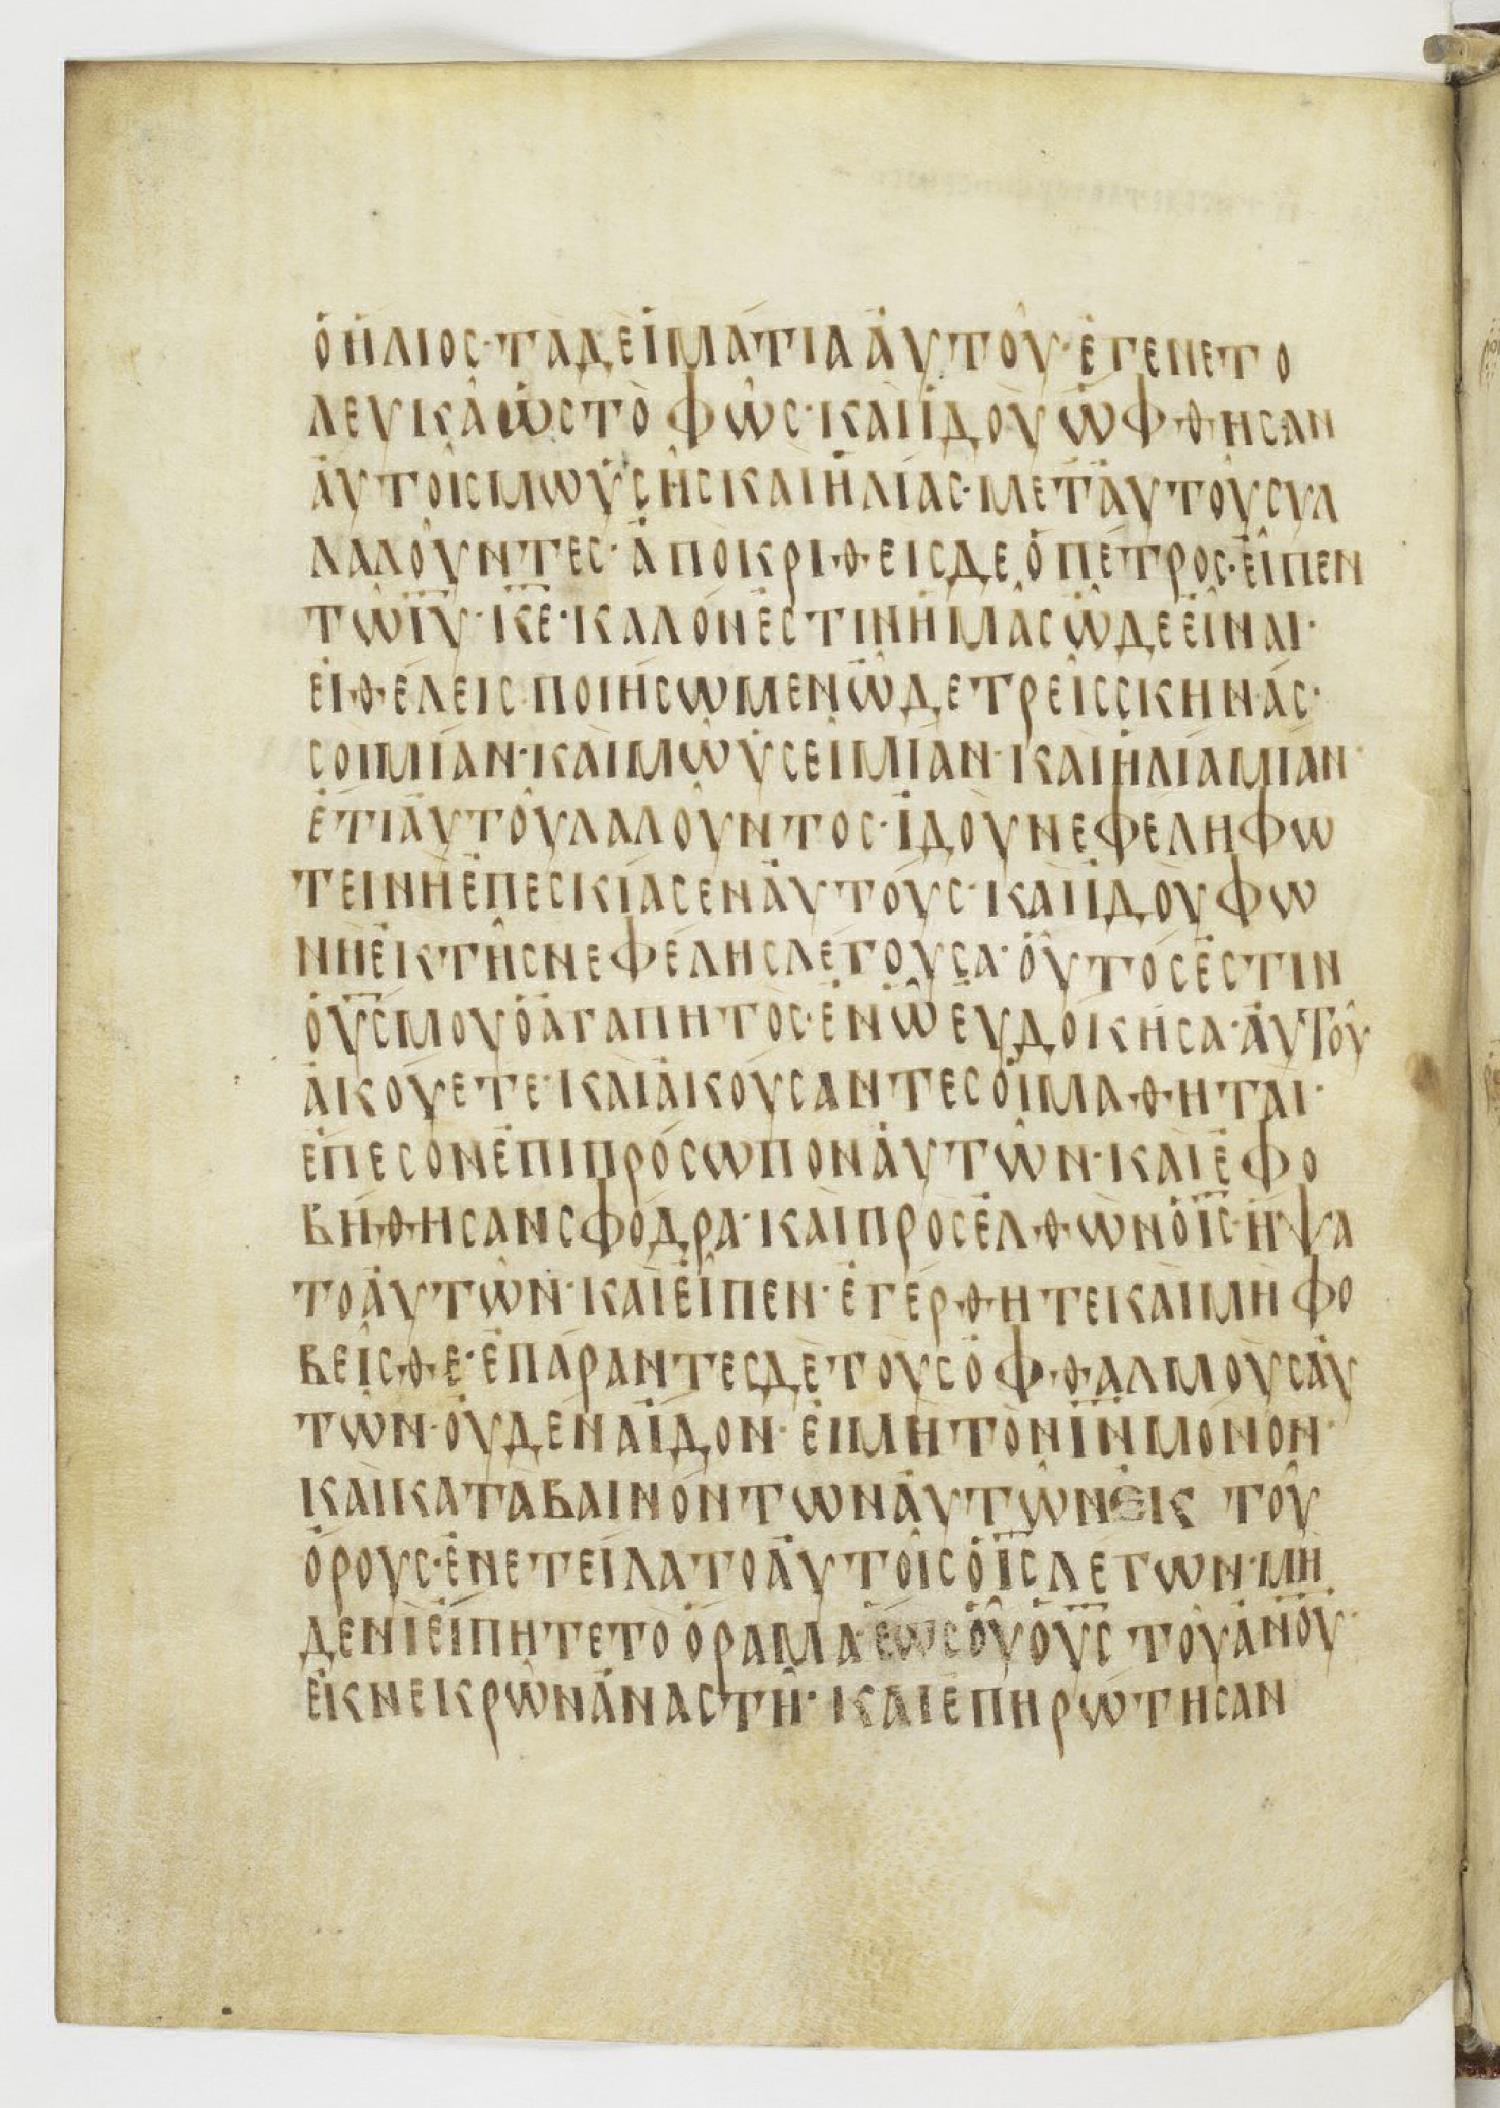 ὁ ἥλιος· τὰ δὲ ἱμάτια ἀυτοῦ· ἐγενετο
λευκὰ ὡς τὸ φῶς· καὶ ἰδοὺ ὤφθησαν
ἀυτοῖς μωϋσῆς καὶ ἡλίας· μετ ἀυτοῦ συλ
λαλοῦντες· ἀποκριθεις δε ὁ πέτρος· εἶπεν
τῶ ι̅υ̅· κ̅ε̅· καλόν ἐστιν ἡμᾶς ὧδε εἶναι·
ἐι θέλεις ποιήσωμεν ὧδε τρεῖς σκηνάς·
σοὶ μίαν· καὶ μωϋσεῖ μίαν· καὶ ἡλία μίαν·
ἔτι ἀυτοῦ λαλοῦντος· ἰδοὺ νεφέλη φω
τεινὴ ἐπεσκίασεν ἀυτούς· καὶ ἰδοὺ φω
νὴ ἐκ τῆς νεφέλης λέγουσα· οὗτός ἐστιν
ὁ υ̅ς̅ μου ὁ ἀγαπητὸς· ἐν ὧ ἐυδόκησα· ἀυτοῦ
ἀκούετε· καὶ ἀκούσαντες ὁι μαθηταὶ·
ἔπεσον ἐπὶ πρόσωπον ἀυτῶν· καὶ ἐφο
βήθησαν σφόδρα· καὶ προσελθὼν ὁ ι̅ς̅· ἥψα
το ἀυτῶν· καὶ εἶπεν· ἐγέρθητε καὶ μὴ φο
βεῖσθε· ἐπάραντες δὲ τοὺς ὀφθαλμοὺς ἀυ
τῶν· ὀυδένα ἴδον· ἐι μὴ τὸν ι̅ν̅ μόνον·
καὶ καταβαινόντων ἀυτῶν ἐκ τοῦ
ὄρους· ἐνετείλατο ἀυτοῖς ὁ ι̅ς̅ λέγων· μη
δενὶ εἴπητε τὸ ὅραμα· ἕως οὗ ὁ υ̅ς̅ τοῦ α̅ν̅ο̅υ̅·
ἐκ νεκρῶν ἀναστῆ· καὶ ἐπηρώτησαν